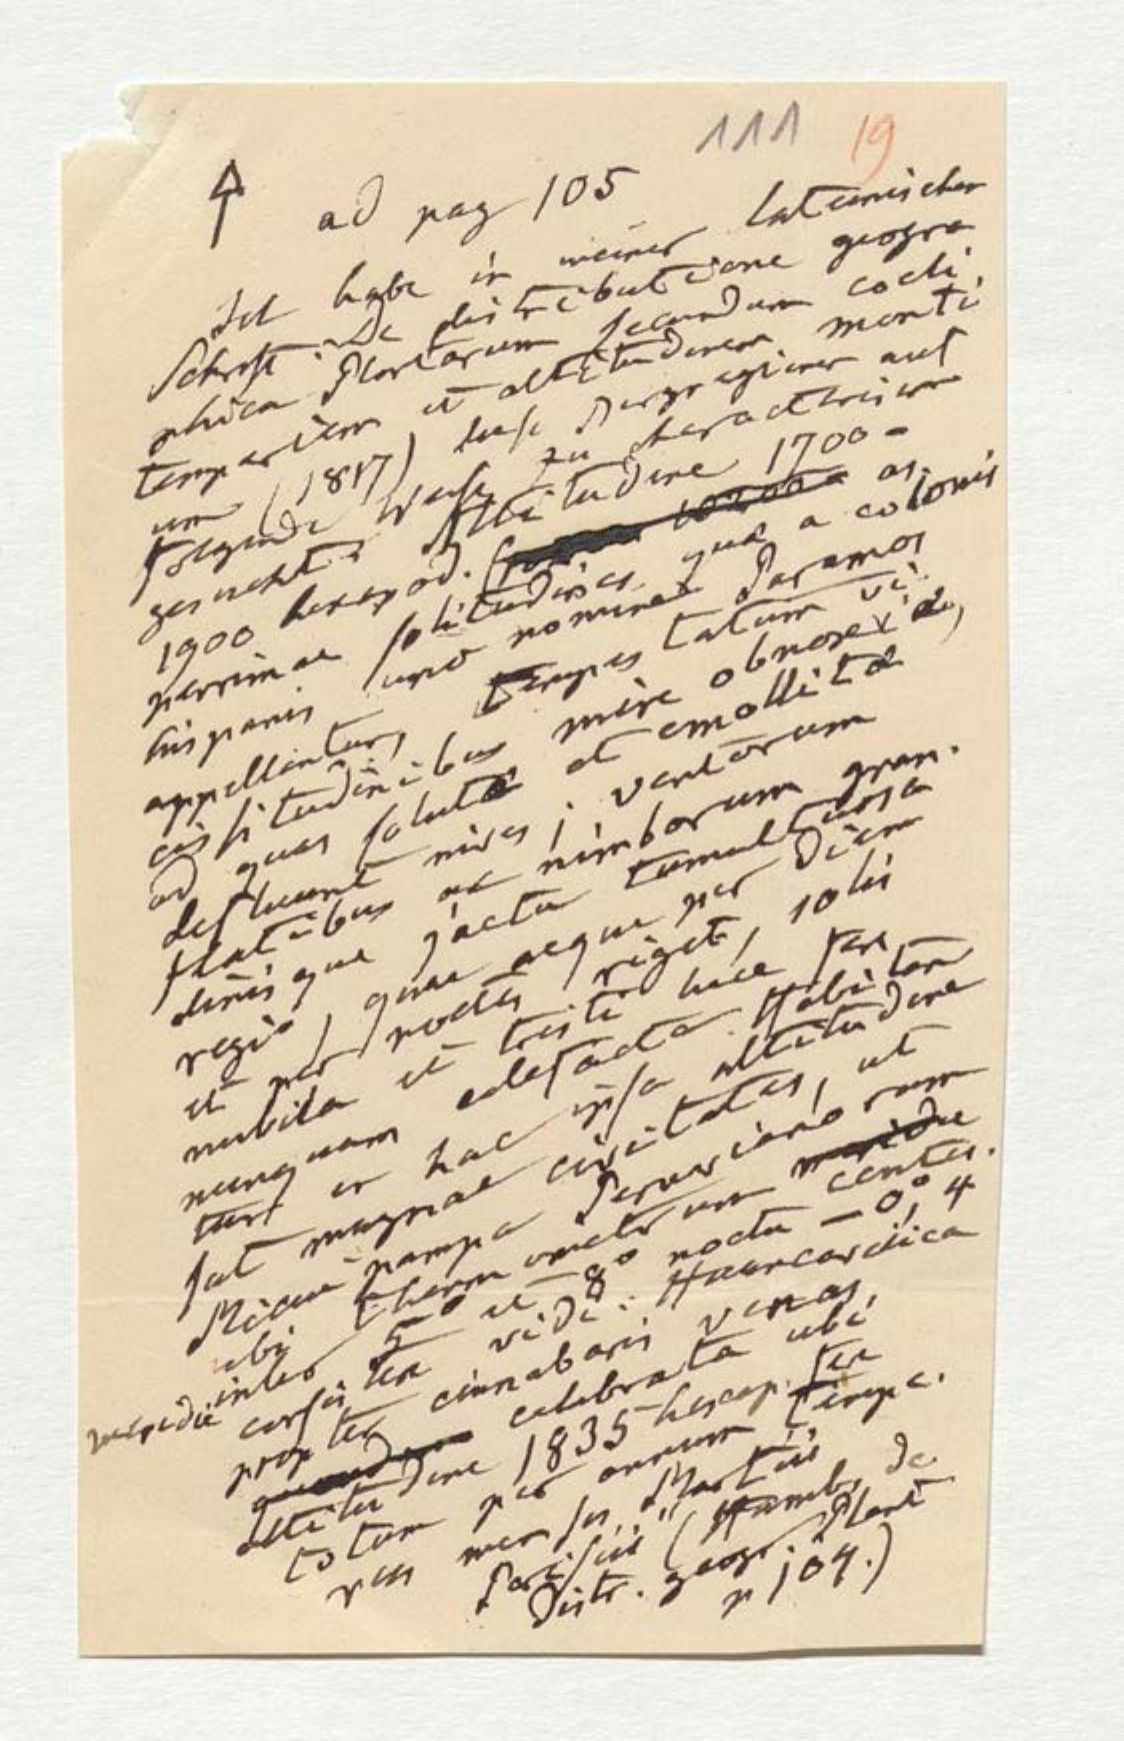 111 19
ad pag 105
Ich habe in meiner lateinischen
Schrift: De distributione geogra
phica Plantarum secundum coeli
temperiem et altitudinem monti
um (1817) diese Bergregionen auf
folgende Weise zu characterisiren
gesucht: Altitudine 1700 –
1900 hexapod. as
perrimae solitudines, quae a colonis
hispanis uno nomine Paramos
appellantur, tempestatum vi
cissitudinibus mire obnoxiae,
ad quas solutae et emollitae
defluunt nives; ventorum
flatibus ac nimborum gran
dinisque jactu tumultuosa
regio, quae aeque per diem
et per noctes riget, solis
nubila et tristi luce fere
nunquam calefacta. Habitan
tur in hac ipsa altitudine
sat magnae civitates, ut
Micuipampa Peruvianorum
ubi thermometrum meridie
meridie inter 5° et 8° noctu –0°,4 centes.
consistere vidi: Huancavelica
propter cinnabaris venas
celebrata ubi
altitudine 1835 hexap. fere
totum per annum tempe
ries mensis Martii
Parisiis" (Humb. de
distr. geogr. Plant
p 104.)